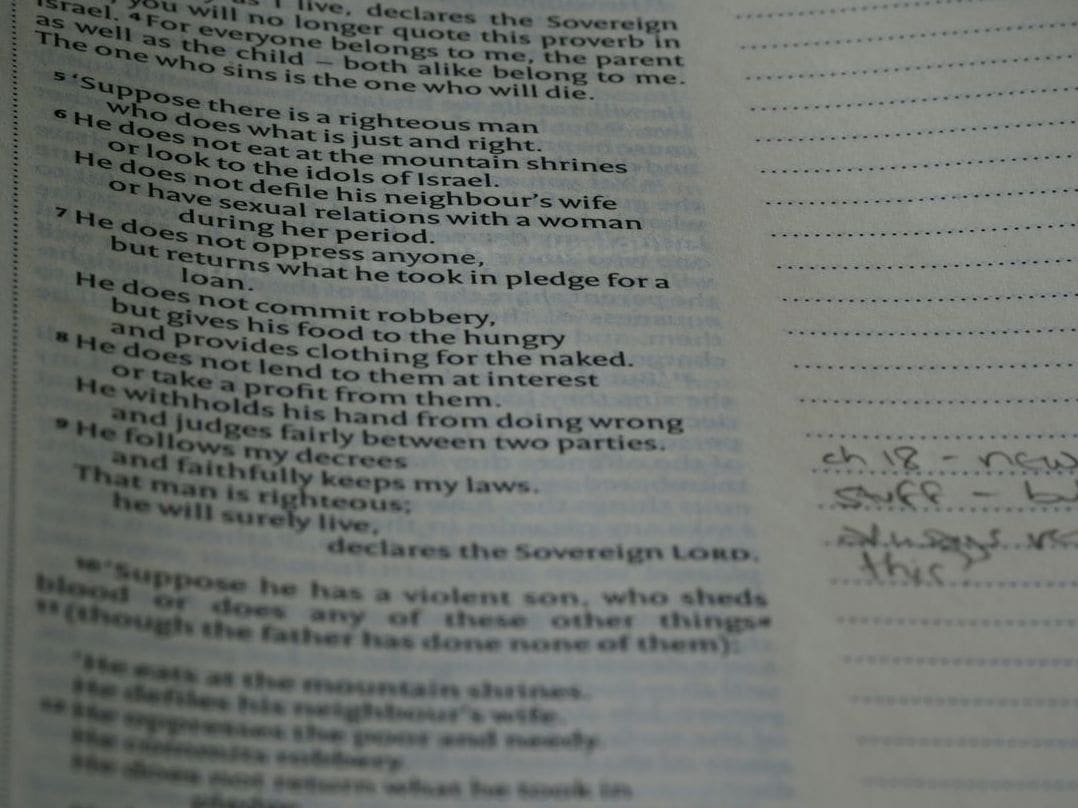 as I live, declares the Sovereign
you will no longer quote this proverb in
Israel. 4 For everyone belongs to me, the parent
as well as the child – both alike belong to me.
The one who sins is the one who will die.
5 ‘Suppose there is a righteous man
who does what is just and right.
6 He does not eat at the mountain shrines
or look to the idols of Israel.
He does not defile his neighbour’s wife
or have sexual relations with a woman
during her period.
7 He does not oppress anyone,
but returns what he took in pledge for a
loan.
He does not commit robbery,
but gives his food to the hungry
and provides clothing for the naked.
8 He does not lend to them at interest
or take a profit from them.
He withholds his hand from doing wrong
and judges fairly between two parties.
9 He follows my decrees
and faithfully keeps my laws.
That man is righteous;
he will surely live,
declares the Sovereign LORD.
10 ‘Suppose he has a violent son, who sheds
blood or does any of these other things
11 (though the father has done none of them):
‘He eats at the mountain shrines.
He defiles his neighbour’s wife.
12 He oppresses the poor and needy.
He commits robbery.
He does not return what he took in
ch 18 - new
stuff -
always
this?